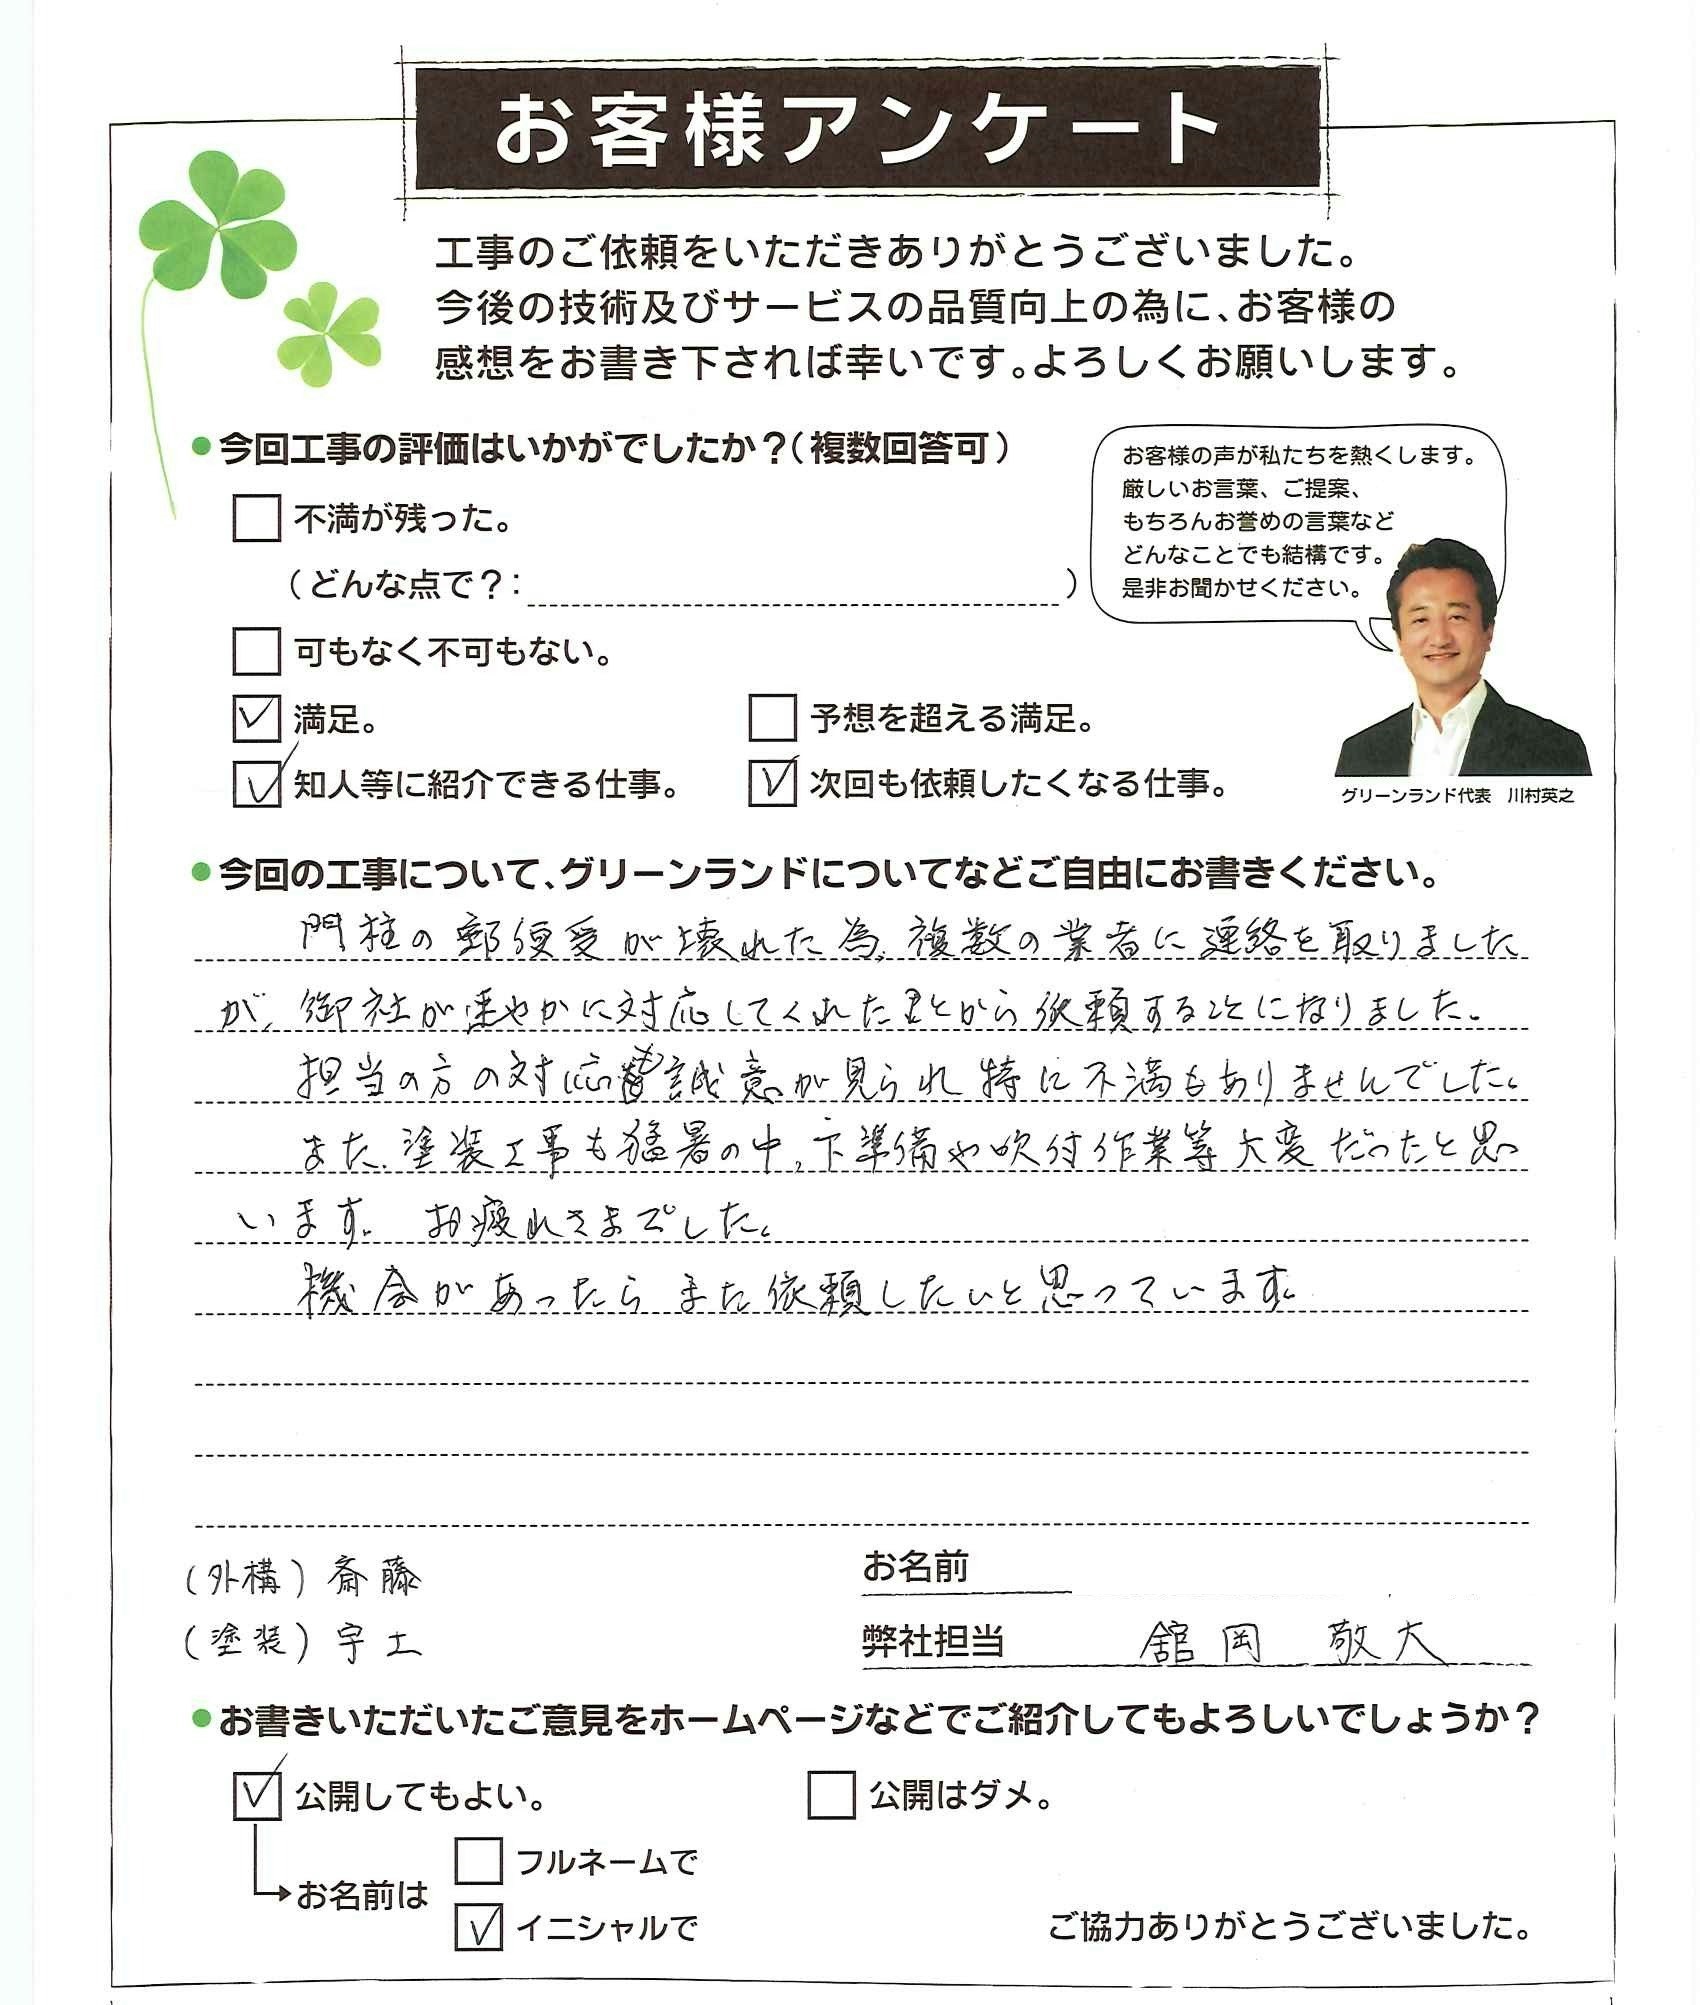 お客様アンケート
工事のご依頼をいただきありがとうございました。
今後の技術及びサービスの品質向上の為に、お客様の
感想をお書き下されば幸いです。よろしくお願いします。
●今回工事の評価はいかがでしたか？（複数回答可）
不満が残った。
（どんな点で？： ）
可もなく不可もない。
満足。
予想を超える満足。
知人等に紹介できる仕事。
次回も依頼したくなる仕事。
お客様の声が私たちを熱くします。
厳しいお言葉、ご提案、
もちろんお誉めの言葉など
どんなことでも結構です。
是非お聞かせください。
グリーンランド代表 川村英之
●今回の工事について、グリーンランドについてなどご自由にお書きください。
門柱の郵便受が壊れた為、複数の業者に連絡を取りました
が、御社が速やかに対応してくれたことから依頼することになりました。
担当の方の対応も誠意が見られ特に不満もありませんでした。
また、塗装工事も猛暑の中、下準備や吹付作業等大変だったと思
います。 お疲れさまでした。
機会があったらまた依頼したいと思っています。
（外構）斎藤
（塗装）宇土
お名前
弊社担当 舘岡 敬大
●お書きいただいたご意見をホームページなどでご紹介してもよろしいでしょうか？
公開してもよい。
公開はダメ。
お名前は
フルネームで
イニシャルで
ご協力ありがとうございました。